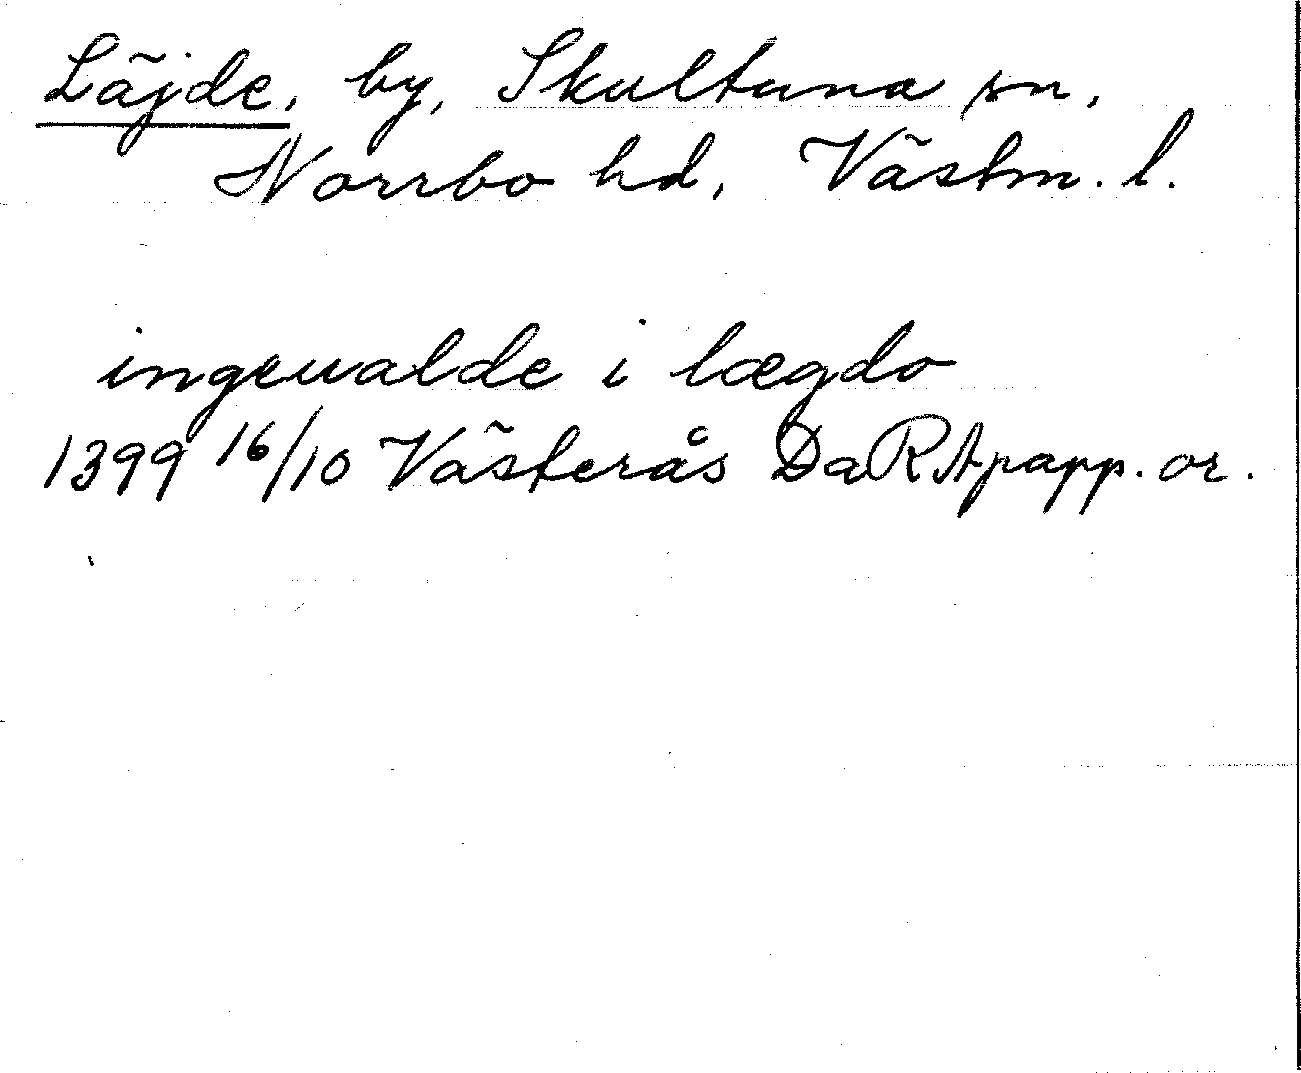 Läjde, by, Skultuna sn,
Norrbo hd, Västm. l.
ingeualde i lægdo
1399 16/10 Västerås Da RApapp. or.